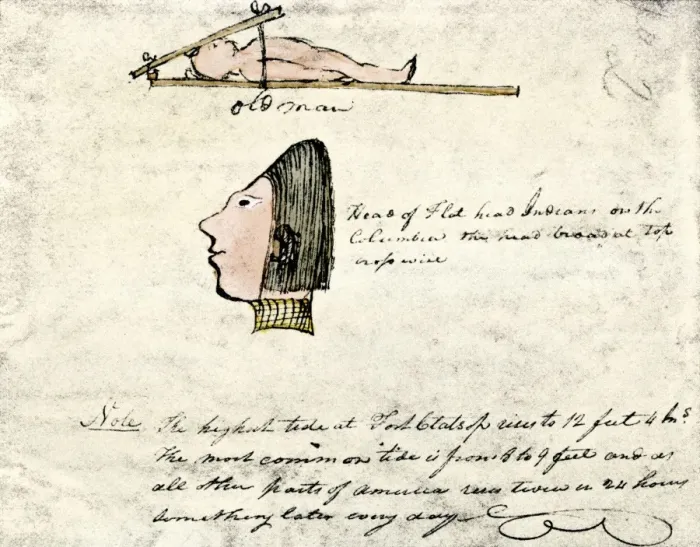 old man
Head of Flat head Indians on the
Columbia the head broad at top
cross wise
Note The highest tide at Fort Clatsop rises to 12 feet 4 Ins
The most common tide is from 8 to 9 feet and as
all other parts of america rises twice in 24 hours
something later every day